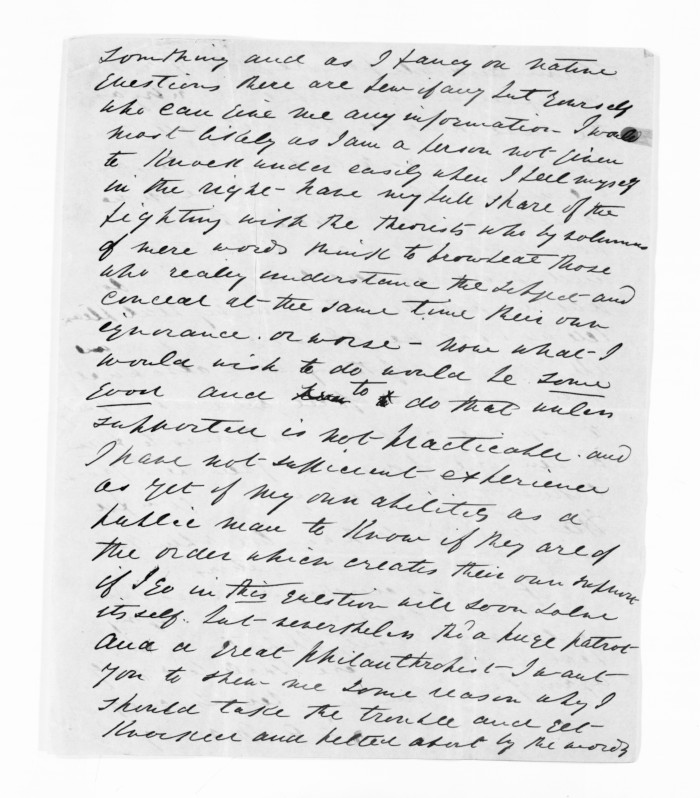 something and as I fancy on native
questions there are few if any but yourself
who can give me any information - I would
most likely as I am a person not given
to Knock under easily when I feel myself
in the right - have my full share of the
fighting with the theorists who by volumes
of mere words think to browbeat those
who really understand the subject and
conceal at the same time their own
ignorance. or worse - now what I
would wish to do would be some
good and to do that unless
supported is not practicable. and
I have not sufficient experience
as yet of my own abilities as a
public man to Know if they are of
the order which creates their own support
if I go in this question will soon solve
itself. but nevertheless tho' a huge patriot
and a great philanthropist I want
you to shew me some reason why I
should take the trouble and get
Knocked and pelted about by the words